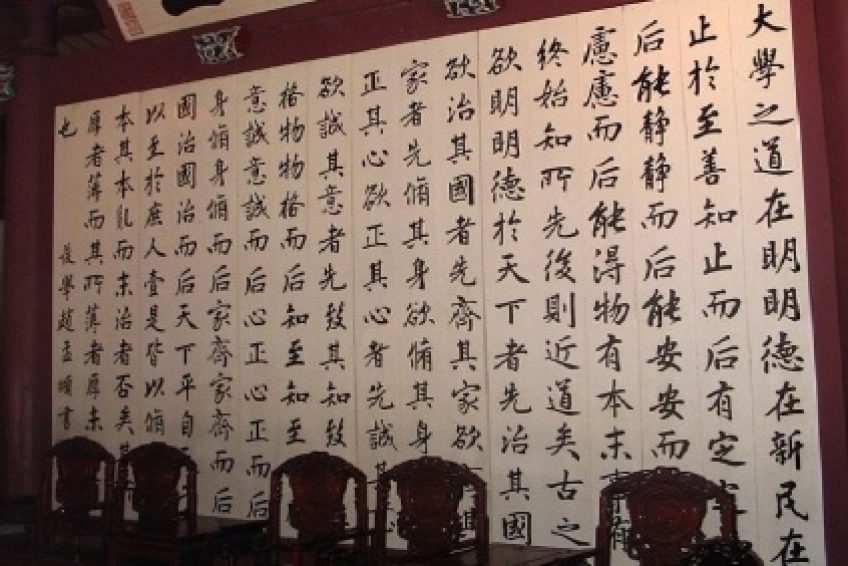 大學之道在明明德在新民在
止於至善知止而后有定
后能静静而后能安安而
慮慮而后能得物有本末事有
終始知所先後則近道矣古之
欲明明德於天下者先治其國
欲治其國者先齊其家欲其
家者先脩其身欲脩其身
正其心欲正其心者先誠其
欲誠其意者先致其知致
格物物格而后知至知至
意誠意誠而后心正心正而后
身脩身脩而后家齊家齊而后
國治國治而后天下平自
以至於庶人壹是皆以脩
本其本乱而末治者否矣其
厚者薄而其所薄者厚未
也
後學趙孟頫書